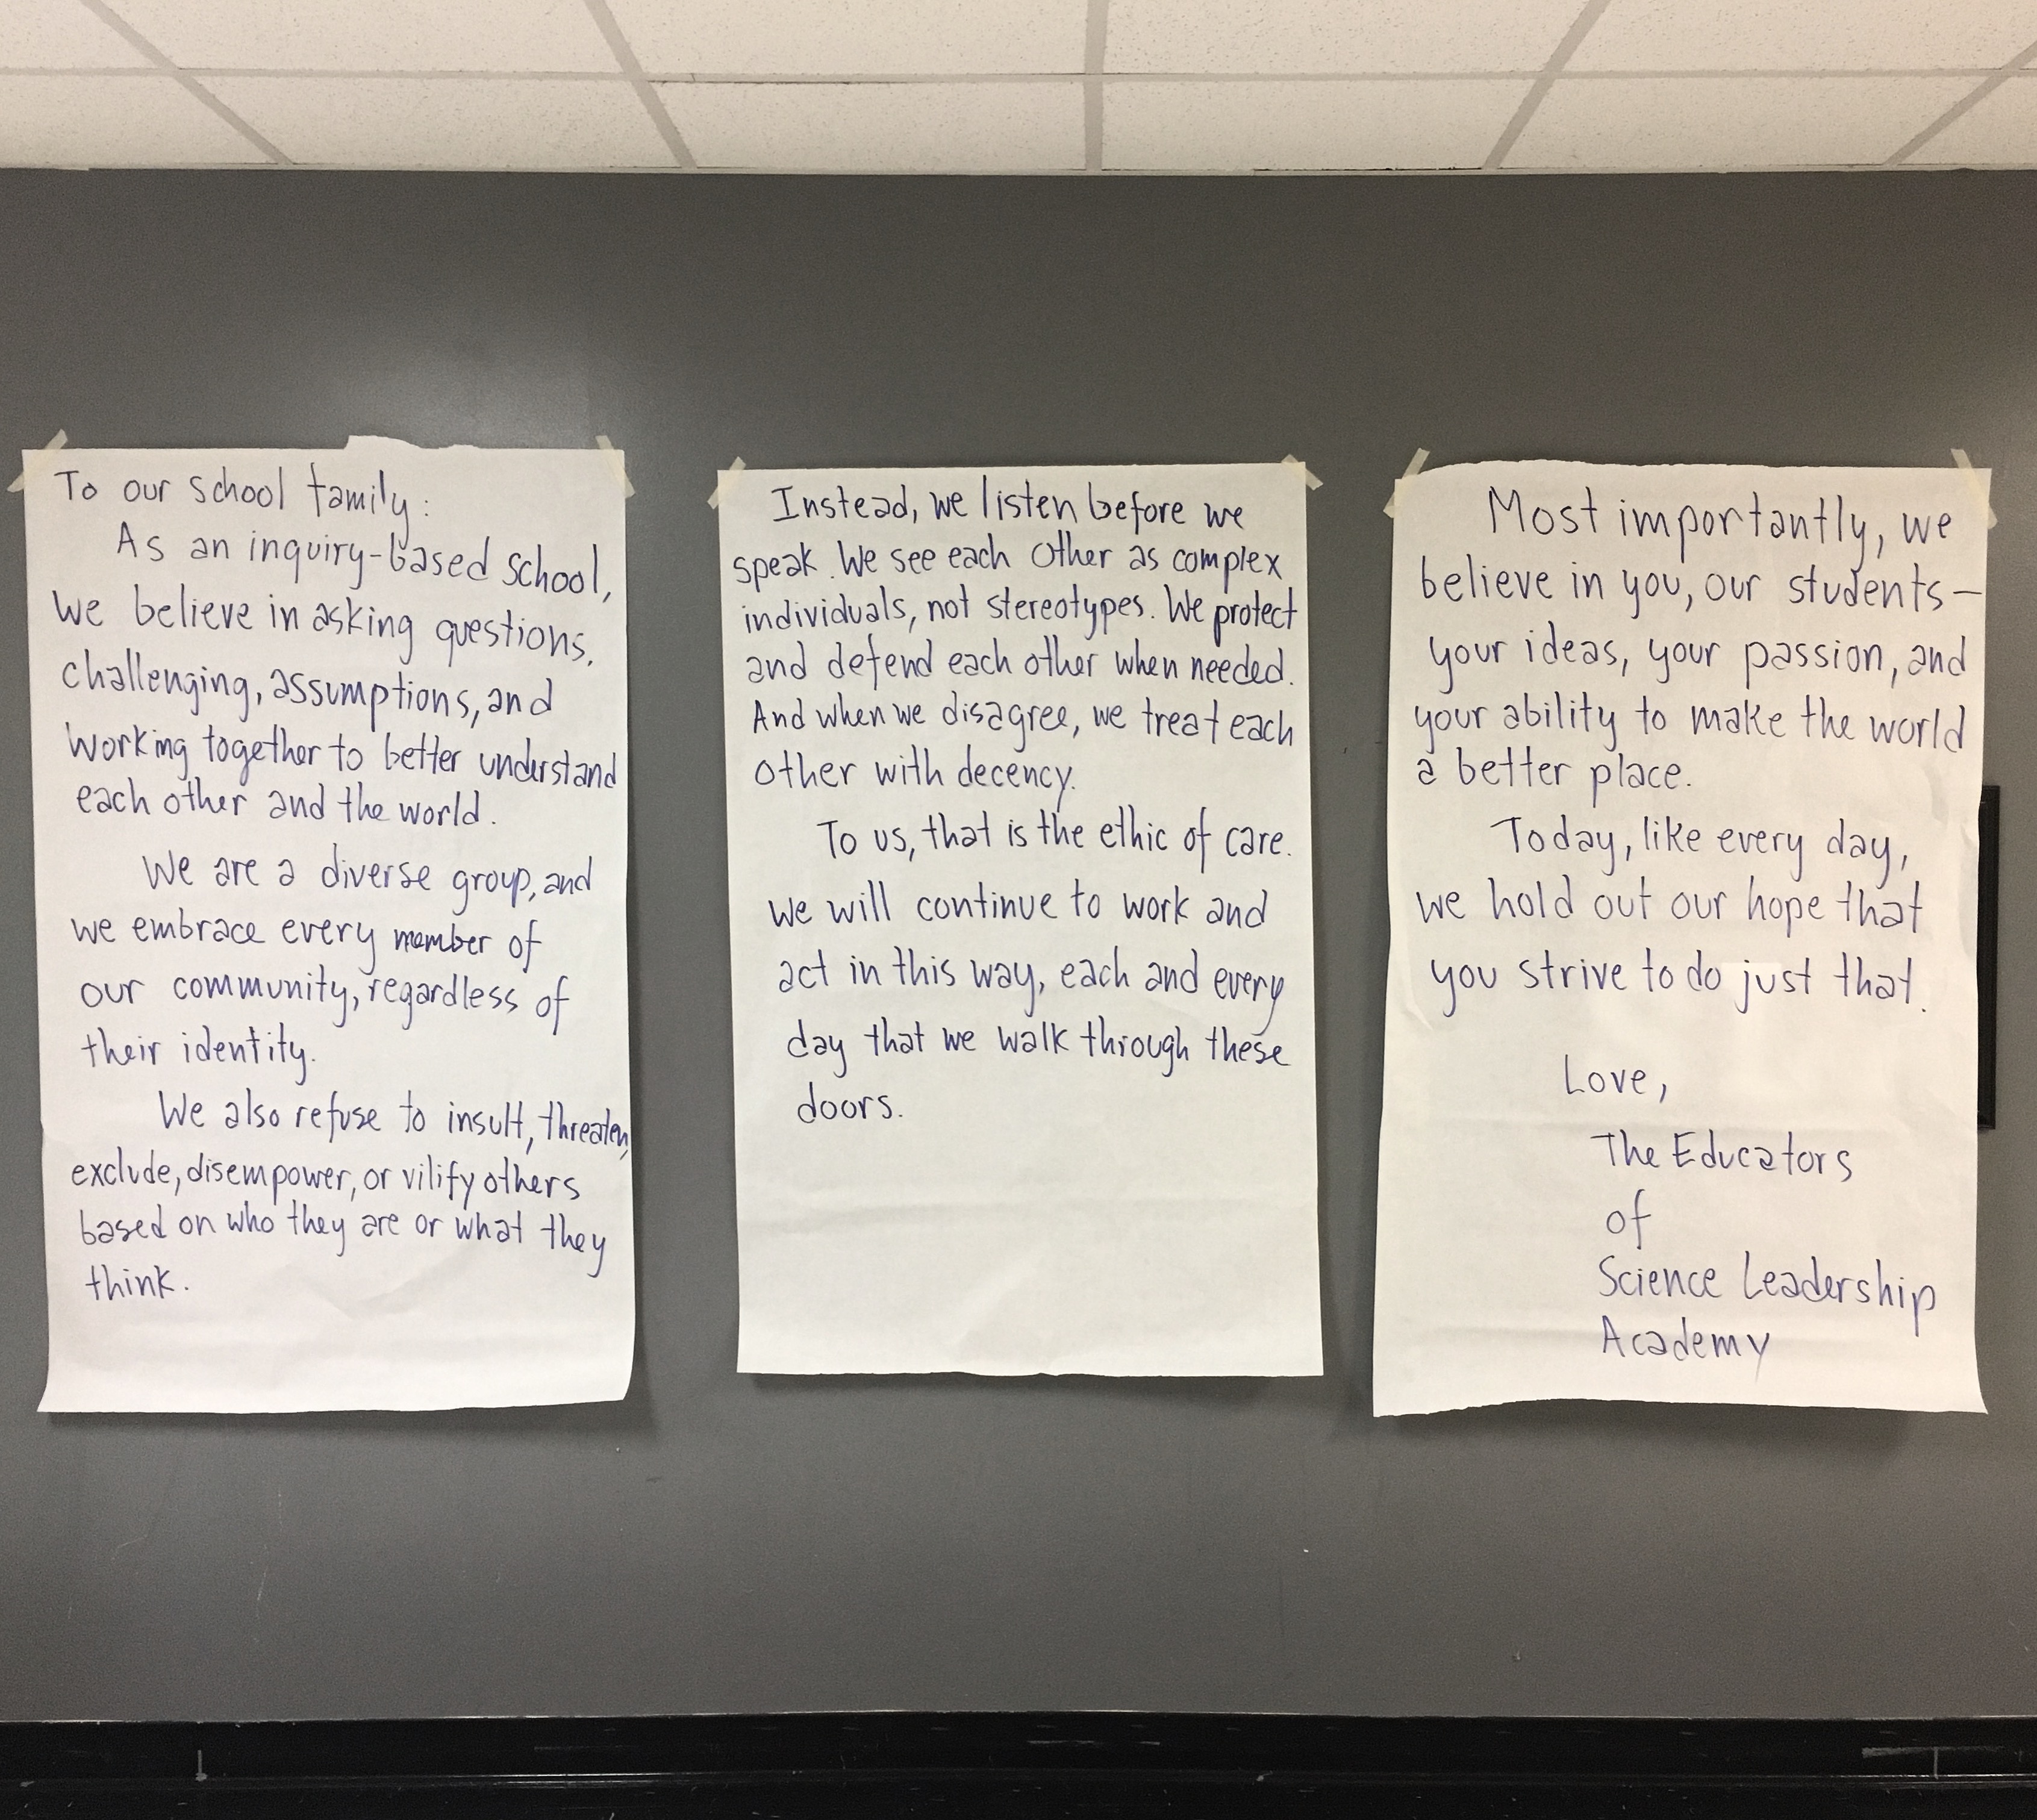 To our school family:
As an inquiry-based school,
we believe in asking questions,
challenging, assumptions, and
working together to better understand
each other and the world.
We are a diverse group, and
we embrace every member of
our community, regardless of
their identity.
We also refuse to insult, threaten,
exclude, disempower, or vilify others
based on who they are or what they
think.
Instead, we listen before we
speak. We see each other as complex
individuals, not stereotypes. We protect
and defend each other when needed.
And when we disagree, we treat each
other with decency.
To us, that is the ethic of care.
We will continue to work and
act in this way, each and every
day that we walk through these
doors.
Most importantly, we
believe in you, our students—
your ideas, your passion, and
your ability to make the world
a better place.
Today, like every day,
we hold out our hope that
you strive to do just that.
Love,
The Educators
of
Science Leadership
Academy